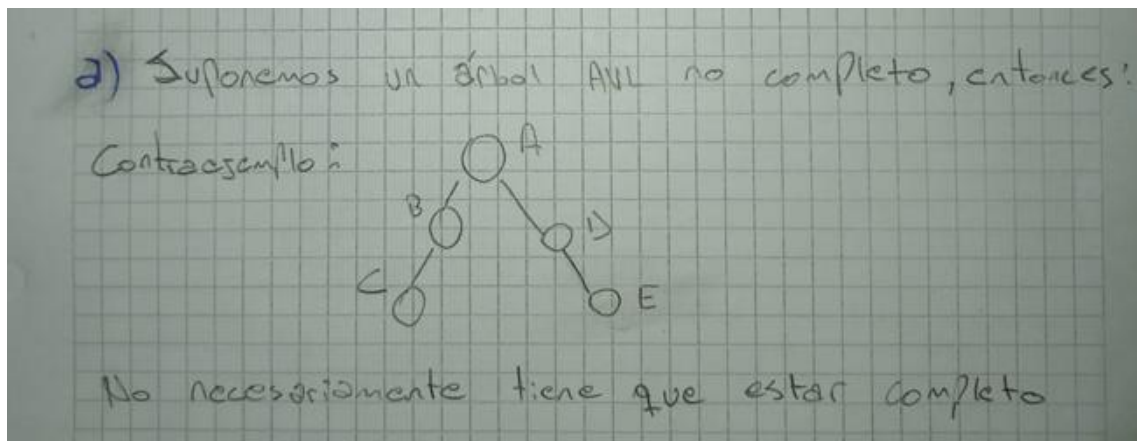 a) Suponemos un árbol AVL no completo, entonces:
Contraejemplo:
A
B
D
C
E
No necesariamente tiene que estar completo